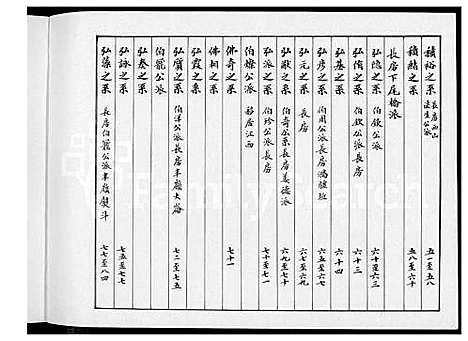 積裕之系 長房西山達生公派 五一至五八
積緒之系 五八至六十
長房下尾橋派
弘隐之系 伯欽公派 六十至六三
弘脩之系 伯欽公派長房 六十三
弘基之系 六十四
弘彦之系 伯周公派鴻牕班 六五至六七
弘元之系 長房 六七至六九
弘猷之系 伯奇公系長房美德派 六九至七十
弘派之系 伯珍公派長房 七十至七一
伯燦公派 移居江西
佛奇之系 七十一
佛桐之系
弘霞之系
弘寶之系 伯洋公派長房半嶺大崙 七二至七五
伯龍公派
弘泰之系
弘詠之系 七五至七七
弘藻之系 長房伯龍公派半嶺熨斗 七七至八四
FamilySearch